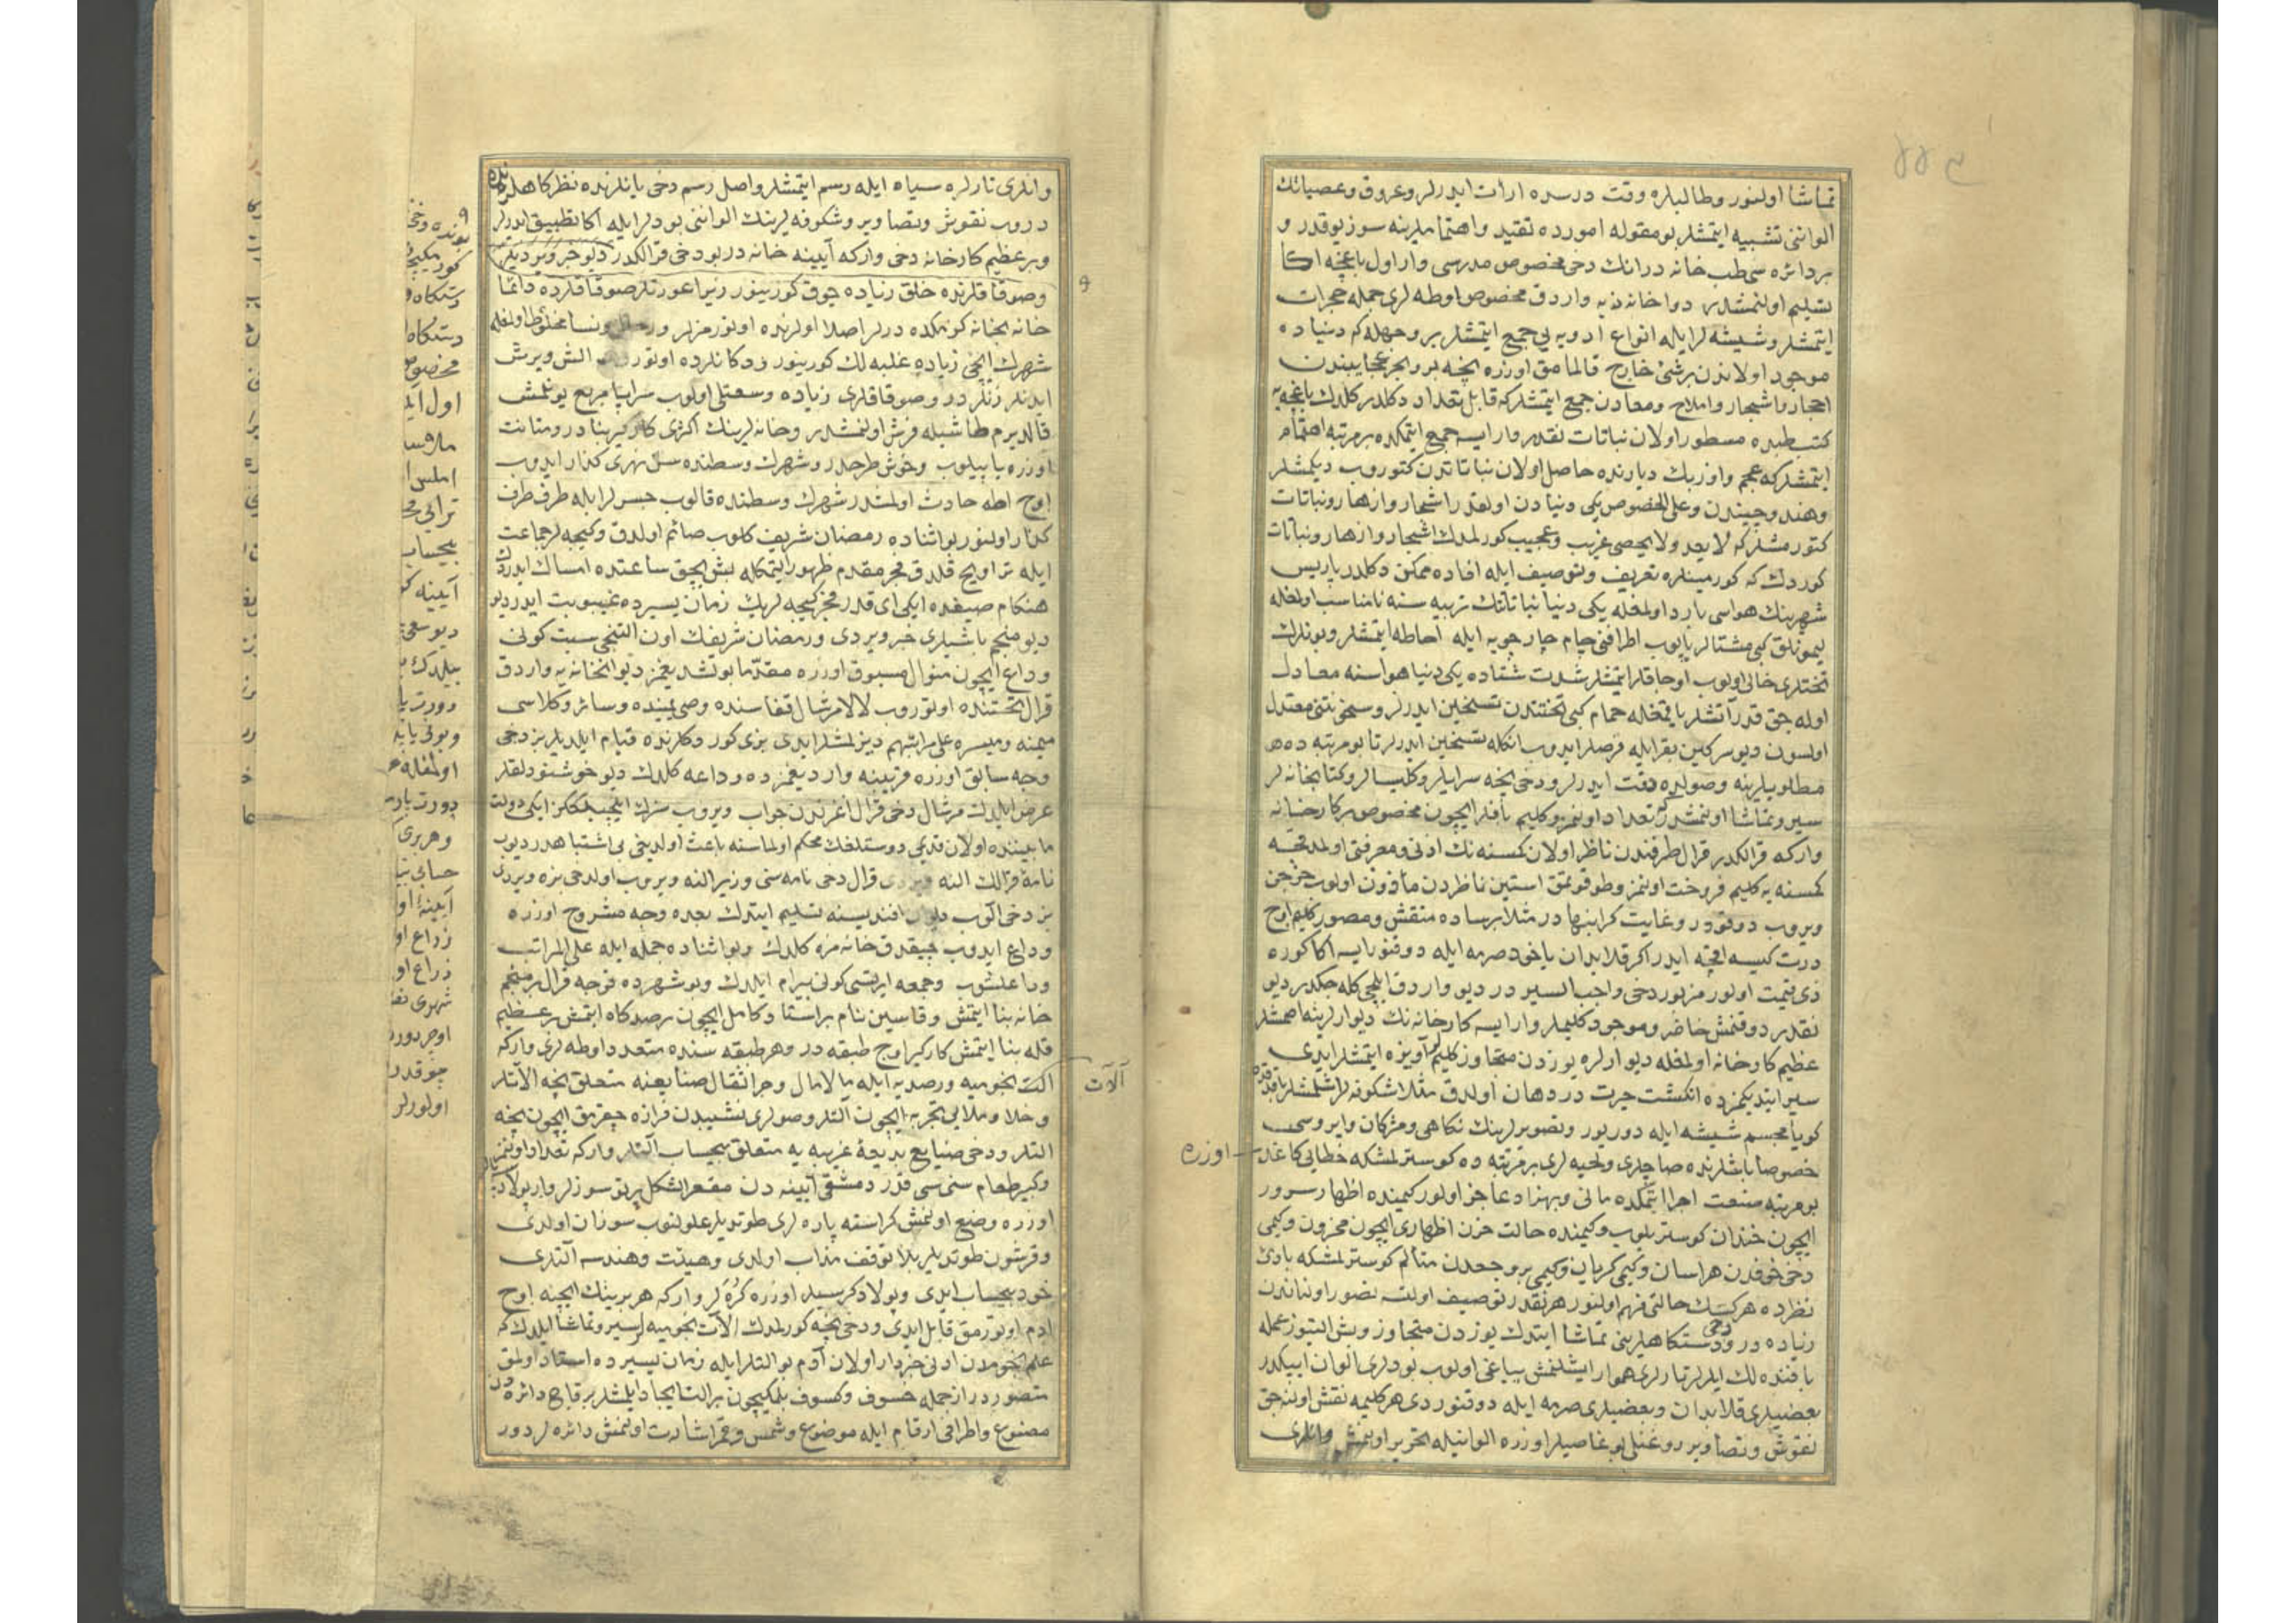 تماشا اولنور وطالبلره وقت درسده ارائت ايدرلر وعروق وعصباتك
الواننى تشبيه ايتمشلر بو مقوله امورده تقيد واهتماملرينه سوز يوقدر و
بر دائره سى طب خانه در انك دخى مخصوص مدرسى وار اول باغچه اكا
تسليم اولنمشدر دواخانه نه واردق مخصوص اوطه لرى جمله حجرات
ايتمشلر وشيشه لر ايله انواع ادويه يى جمع ايتمشلر بر وجهله كه دنياده
موجود اولاندن برشئ خارج قالمامق اوزره نجه بر وبحر عجايبندن
احجار واشجار واملاح ومعادن جمع ايتمشلر كه قابل تعداد دكلدر كلدك باغچه يه
كتب طبده مسطور اولان نباتات نقدر وار ايسه جمع ايتمكده بر مرتبه اهتمام
ايتمشلر كه عجم واوزبك ديارنده حاصل اولان نباتاتدن كتوروب ديكمشلر
وهند وچيندن وعلى الخصوص يكى دنيادن اولقدر اشجار وازهار ونباتات
كتورمشلر كه لا يعد ولا يحصى غريب وعجيب كورلمدك اشجار وازهار ونباتات
كوردك كه كورمينلره تعريف وتوصيف ايله افاده ممكن دكلدر پاريس
شهرينك هواسى بارد اولمغله يكى دنيا نباتاتنك تربيه سنه نامناسب اولمغله
ليمونلق كبى مشتالر ياپوب اطرافنى جام چارچوبه ايله احاطه ايتمشلر وبونلرك
تختلرى خالى اولوب اوجاقلر ايتمشلر شدت شتاده يكى دنيا هواسنه معادل
اوله جق قدر آتشلر ياقمغله حمام كبى تختندن تسخين ايدرلر وسخونتنى معتدل
اولسون ديو سركين بقر ايله قرصلر ايدوب انكله تسخين ايدرلر تا بو مرتبه ده
مطلوبلرينه وصولده دقت ايدرلر ودخى نجه سرايلر وكليسالر وكتابخانه لر
سير وتماشا اولنمشدر كه تعداد اولنمز وكليم بافلر ايچون مخصوص كارخانه
واركه قرالكدر قرال طرفندن ناظر اولان كمسنه نك اذنى ومعرفتى اولمدقچه
كمسنه يه كليم فروخت اولنمز وطوقوتمق استين ناظردن مأذون اولوب خرجن
ويروب دوقودر وغايت كرانبها در مثلا برساده منقش ومصور كليم اوچ
درت كيسه اقچه ايدر اكر قلابدان ياخود صرمه ايله دوقنور ايسه اكا كوره
ذى قيمت اولور مزبور دخى واجب السير در ديو واردق ايلچى كله جكدر ديو
نقدر دوقنمش حاضر وموجود كليملر وار ايسه كارخانه نك ديوارلرينه اصمشلر
عظيم كارخانه اولمغله ديوارلره يوزدن متجاوز كليم آويزه ايتمشلر ايدى
سير ايتديكمزده انكشت حيرت در دهان اولدق مثلا شكوفه لر ايشلمشلر
كويا مجسم شيشه ايله دوريور وتصويرلرينك نكاهى ومژكان وابروسى
خصوصا باشلرنده صاچلرى ولحيه لرى بر مرتبه ده كوسترلمشكه خطايى كاغد
اوزره
بو مرتبه صنعت اجرا ايتمكده مانى وبهزاد عاجز اولور كيمنده اظهار سرور
ايچون خندان كوستريلوب وكيمنده حالت حزن اظهارى ايچون محزون وكيمى
دخى خوفدن هراسان وكيمى كريان وكيمى بر وجعدن متألم كوسترلمشكه بادئ
نظرده هر كسك حالتى فهم اولنور هر نقدر توصيف اولنسه تصور اولناندن
زياده در ودخى دستكاهلرينى تماشا ايتدك يوزدن متجاوز وبش التيوز عمله
بافنده لك ايدرلر تارلرى هموار ايشلنمش يپاغى اولوب پودلرى الوان ايپكدر
بعضيلرى قلابدان وبعضيلرى صرمه ايله دوقنور دى هر كليمه نقش اولنه جق
نقوش وتصاوير روغنلى بوغاصيلر اوزره الوانيله تحرير اولنمش وانلرى
وانلرى تارلره سياه ايله رسم ايتمشلر واصل رسم دخى يانلرنده نظركاهلرنده
دروب نقوش وتصاوير وشكوفه لرينك الواننى پودلر ايله اكا تطبيق ايدرلر
وبر عظيم كارخانه دخى واركه آيينه خانه در بو دخى قرالكدر ديو خبر ويرديلر
وصوقاقلرنده خلق زياده چوق كورينور زيرا عورتلر صوقاقلرده دائما
خانه بخانه كزمكده درلر اصلا اولرنده اوتورمزلر ورجال ونسا مخلوط اولمغله
شهرك ايچى زياده غلبه لك كورينور ودكانلرده اوتوروب الش ويرش
ايدنلر زنلردر وصوقاقلرى زياده وسعتلى اولوب سراپا مربع يونلمش
قالديرم طاشيله فرش اولنمشدر وخانه لرينك اكثرى كاركير بنادر ومتانت
اوزره ياپيلوب وخوش طرحدر وشهرك وسطنده سن نهرى كذار ايدوب
اوچ اطه حادث اولمشدر شهرك وسطنده قالوب جسرلر ايله طرف طرف
كذار اولنور بو اثناده رمضان شريف كلوب صائم اولدق وكيجه لر جماعت
ايله تراويح قلدق فجر مقدم ظهور ايتمكله بش بچق ساعتده امساك ايدردك
هنكام صيفده ايكى آى قدر فجر كيجه لرك زمان يسيرده غيبوبت ايدر ديو
ديو منجم باشيلرى خبر ويردى ورمضان شريفك اون التنجى سبت كونى
وداع ايچون منوال مسبوق اوزره مقدما بولشديغمز ديوانخانه يه واردق
قرال تختنده اوتوروب لالا مرشال قفاسنده وصى يميننده وسائر وكلاسى
ميمنه وميسره على مراتبهم ديزلمشلر ايدى بزى كوردكلرنده قيام ايلديلر بز دخى
وجه سابق اوزره قربينه وارديغمزده وداعه كلدك ديو خوشنودلقلر
عرض ايلدك مرشال دخى قرال اغزندن جواب ويروب سزك ايلچيلككز ايكى دولت
مابيننده اولان قديمى دوستلغك محكم اولماسنه باعث اولديغى بى اشتباهدر ديوب
نامه قرالك النه ويردى قرال دخى نامه سنى وزير النه ويروب اولدخى بزه ويردى
بز دخى الوب ديوان افنديسنه تسليم ايتدك بعده وجه مشروح اوزره
وداع ايدوب چيقدق خانه مزه كلدك وبو اثناده جمله ايله على المراتب
وداعلشوب وجمعه ايرتسى كونى بيرام ايلدك وبو شهرده قوجه قرال بر منجم
خانه بنا ايتمش وقاسين بنام بر استاد كامل ايچون رصدكاه ايتمش بر عظيم
قله بنا ايتمش كاركير اوچ طبقه در وهر طبقه سنده متعدد اوطه لرى واركه
آلات
آلات نجوميه ورصديه ايله مالامال وجر اثقال صنايعنه متعلق نجه آلاتلر
وخلا وملايى تجربه ايچون آلتلر وصولرى نشيبدن فرازه چقرمق ايچون نجه
آلتلر ودخى صنايع بديعه غريبه يه متعلق بيحساب آلتلر واركه تعداد اولنمز
وكبير طعام سنى سى قدر دمشقى آيينه دن مقعر الشكل پرتوسوزلر وار پولاد
اوزره وضع اولنمش كراسته پاره لرى طوتديلر علولنوب سوزان اولدى
وقرشون طوتديلر بلا توقف مذاب اولدى وهيئت وهندسه آلتلرى
خود بيحساب ايدى وپولاد كرسيلر اوزره كره لر واركه هر برينك ايچنه اوچ
آدم اوتورمق قابل ايدى ودخى نجه كورلمدك آلات نجوميه لر سير وتماشا ايلدك كه
علم نجومدن ادنى خبردار اولان آدم بو آلتلر ايله زمان يسيرده استاد اولمق
متصوردر از جمله خسوف وكسوف بلمكيچون بر آلت ايجاد ايلمشلر بر قاچ دائره دن
مصنوع واطرافى ارقام ايله موضوع وشمس وقمر اشارت اولنمش دائره لر دور
بونده دخى
دستكاه
اول
آيينه
دورت
اولمغله
وهر برى
ذراع
شهرى
اولورلر